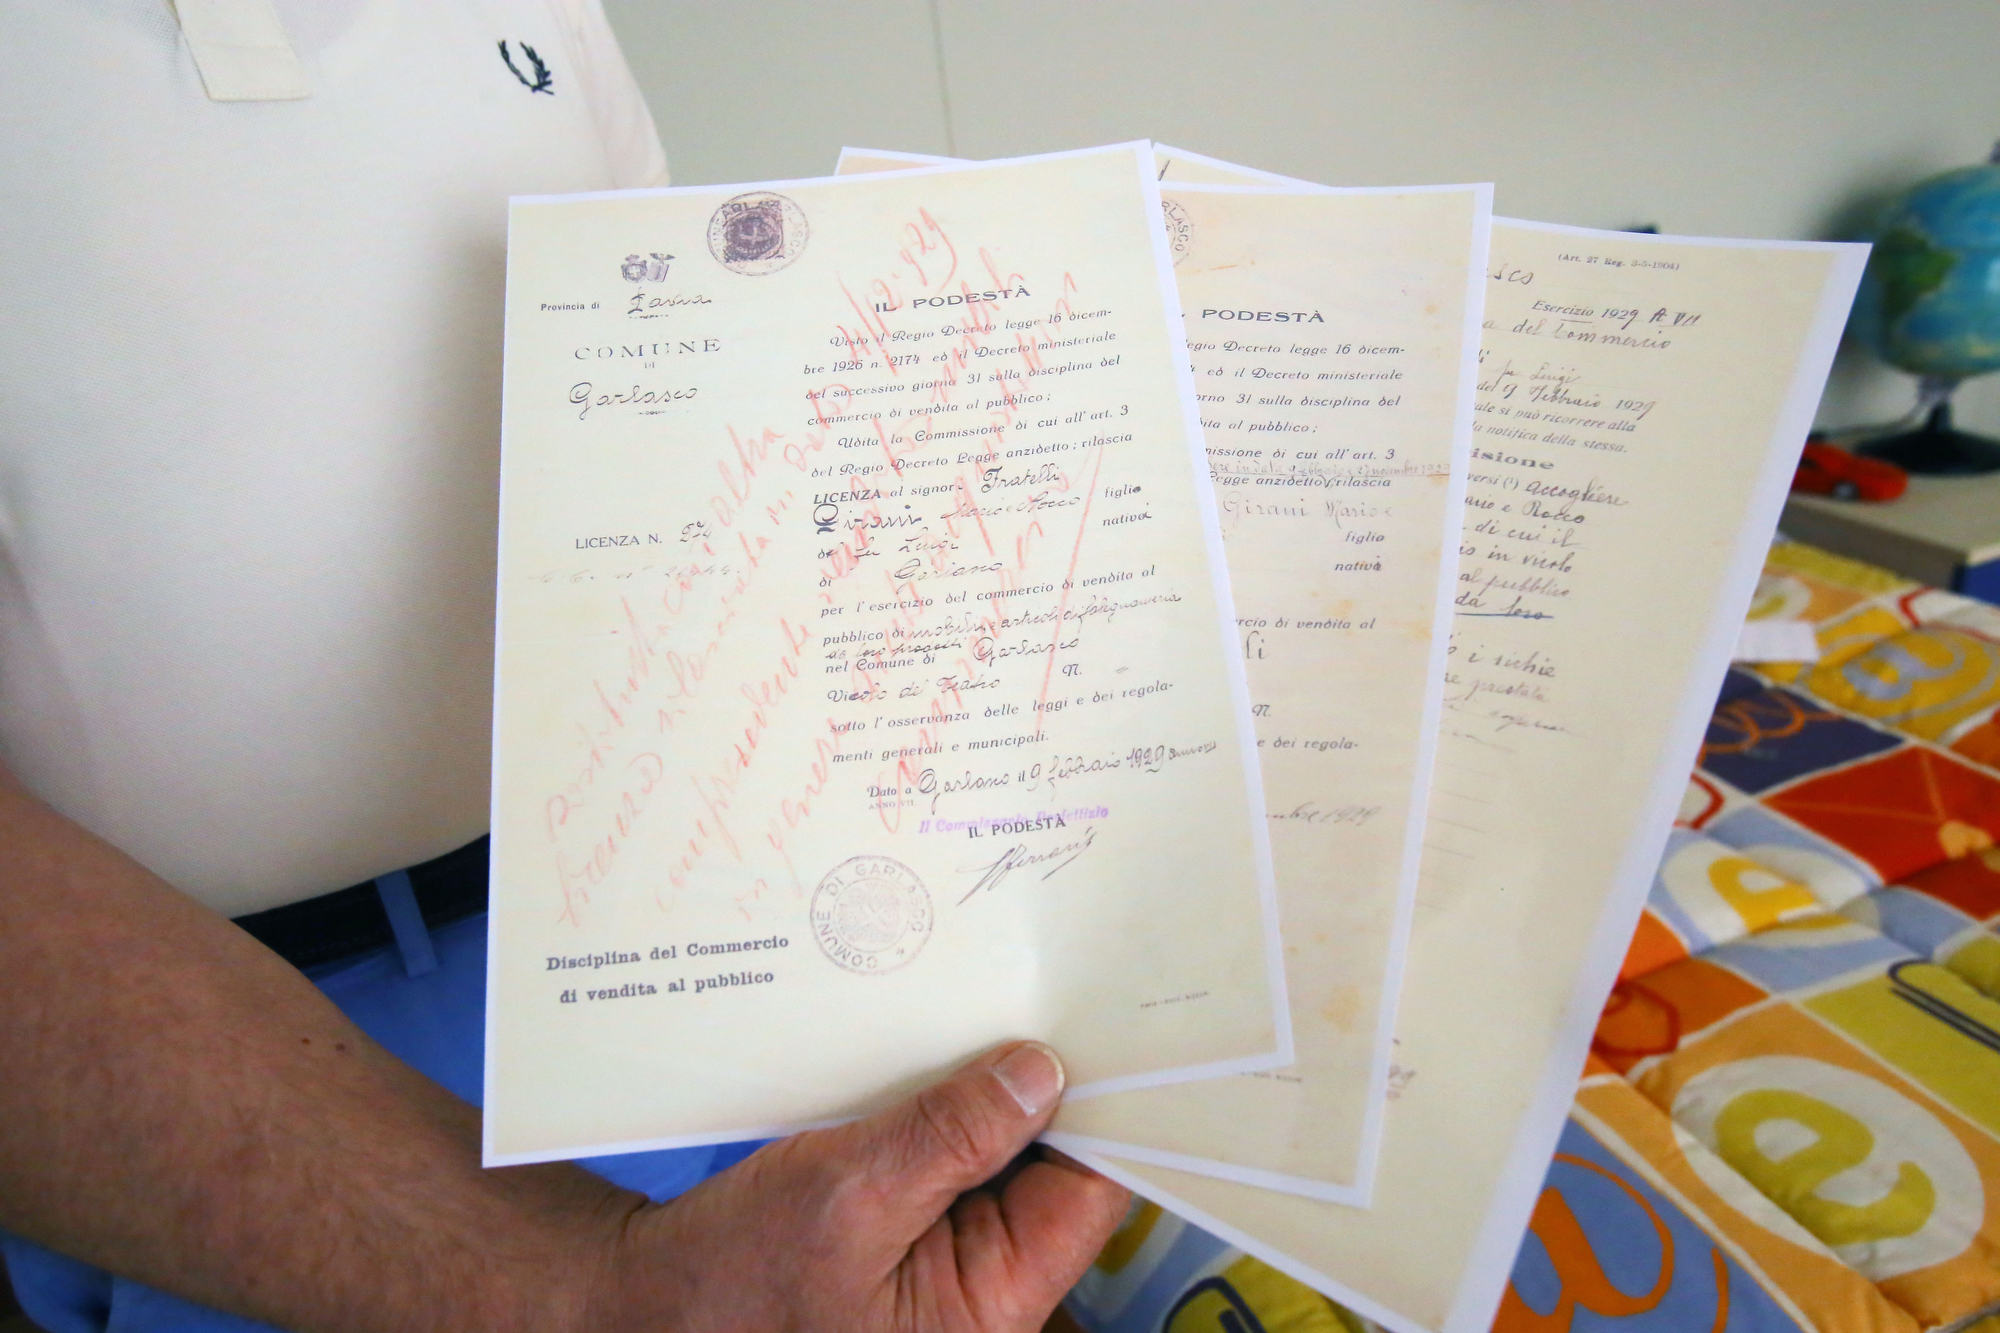 COMUNE DI GARLASCO
Provincia di Pavia
COMUNE
DI
Garlasco
LICENZA N. 274
Disciplina del Commercio
di vendita al pubblico
COMUNE DI GARLASCO
4/12-929
IL PODESTÀ
Visto il Regio Decreto legge 16 dicem-
bre 1926 n. 2174 ed il Decreto ministeriale
del successivo giorno 31 sulla disciplina del
commercio di vendita al pubblico;
Udita la Commissione di cui all'art. 3
del Regio Decreto Legge anzidetto; rilascia
LICENZA al signor Fratelli
Girani Mario e Rocco figlio
del fu Luigi nativo
di Garlasco
per l'esercizio del commercio di vendita al
pubblico di mobili e articoli di falegnameria
da loro prodotti
nel Comune di Garlasco
Vicolo del Teatro N.
sotto l'osservanza delle leggi e dei regola-
menti generali e municipali.
Dato a Garlasco il 9 febbraio 1929
ANNO VII
Il Commissario Prefettizio
IL PODESTÀ
sostituita con altra
licenza rilasciata in data
comprendente
in genere
PODESTÀ
egio Decreto legge 16 dicem-
ed il Decreto ministeriale
orno 31 sulla disciplina del
dita al pubblico;
missione di cui all'art. 3
ere in data 9 febbraio e 27 novembre 1929
Legge anzidetto, rilascia
Girani Mario e
figlio
nativo
rcio di vendita al
li
N.
e dei regola-
mbre 1929
(Art. 27 Reg. 3-5-1904)
sco
Esercizio 1929 A VII
a del Commercio
fu Luigi
del 9 febbraio 1929
ale si può ricorrere alla
la notifica della stessa.
isione
versi (¹) accogliere
ario e Rocco
di cui il
io in vicolo
al pubblico
da loro
i richie
re prestata